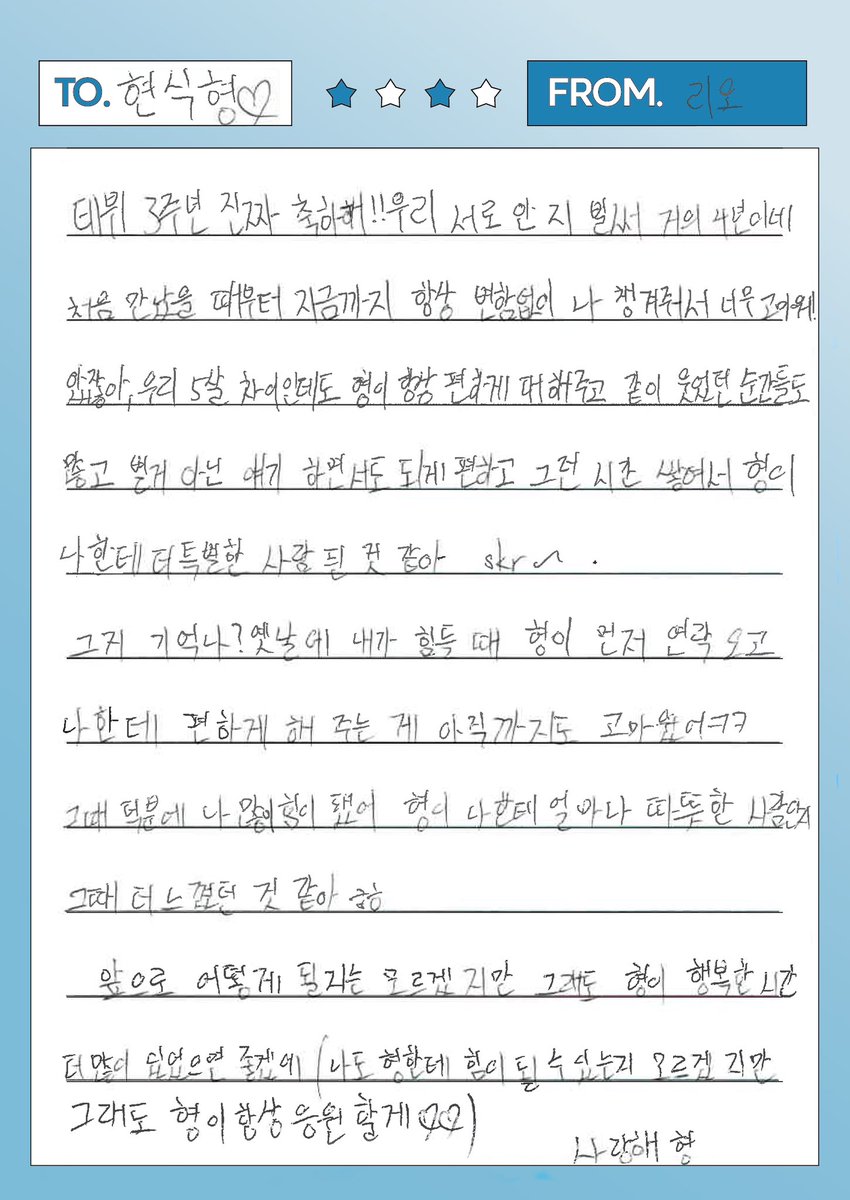 TO. 현식형♡
FROM. 리오
데뷔 3주년 진짜 축하해!!우리 서로 안 지 벌써 거의 4년이네
처음 만났을 때부터 지금까지 항상 변함없이 나 챙겨줘서 너무 고마워!
있잖아, 우리 5살 차이인데도 형이 항상 편하게 대해주고 같이 웃었던 순간들도
좋고 별거 아닌 얘기 하면서도 되게 편하고 그런 시간 쌓여서 형이
나한테 더 특별한 사람 된 것 같아 skr~ .
그지 기억나? 옛날에 내가 힘들 때 형이 먼저 연락 오고
나한테 편하게 해 주는 게 아직까지도 고마웠어ㅋㅋ
그때 덕분에 나 많이 힘이 됐어 형이 나한테 얼마나 따뜻한 사람인지
그때 더 느꼈던 것 같아 ㅎㅎ
앞으로 어떻게 될지는 모르겠지만 그래도 형이 행복한 시간
더 많이 있었으면 좋겠에 (나도 형한테 힘이 될 수 있는지 모르겠지만
그래도 형이 항상 응원 할게♡♡)
사랑해 형